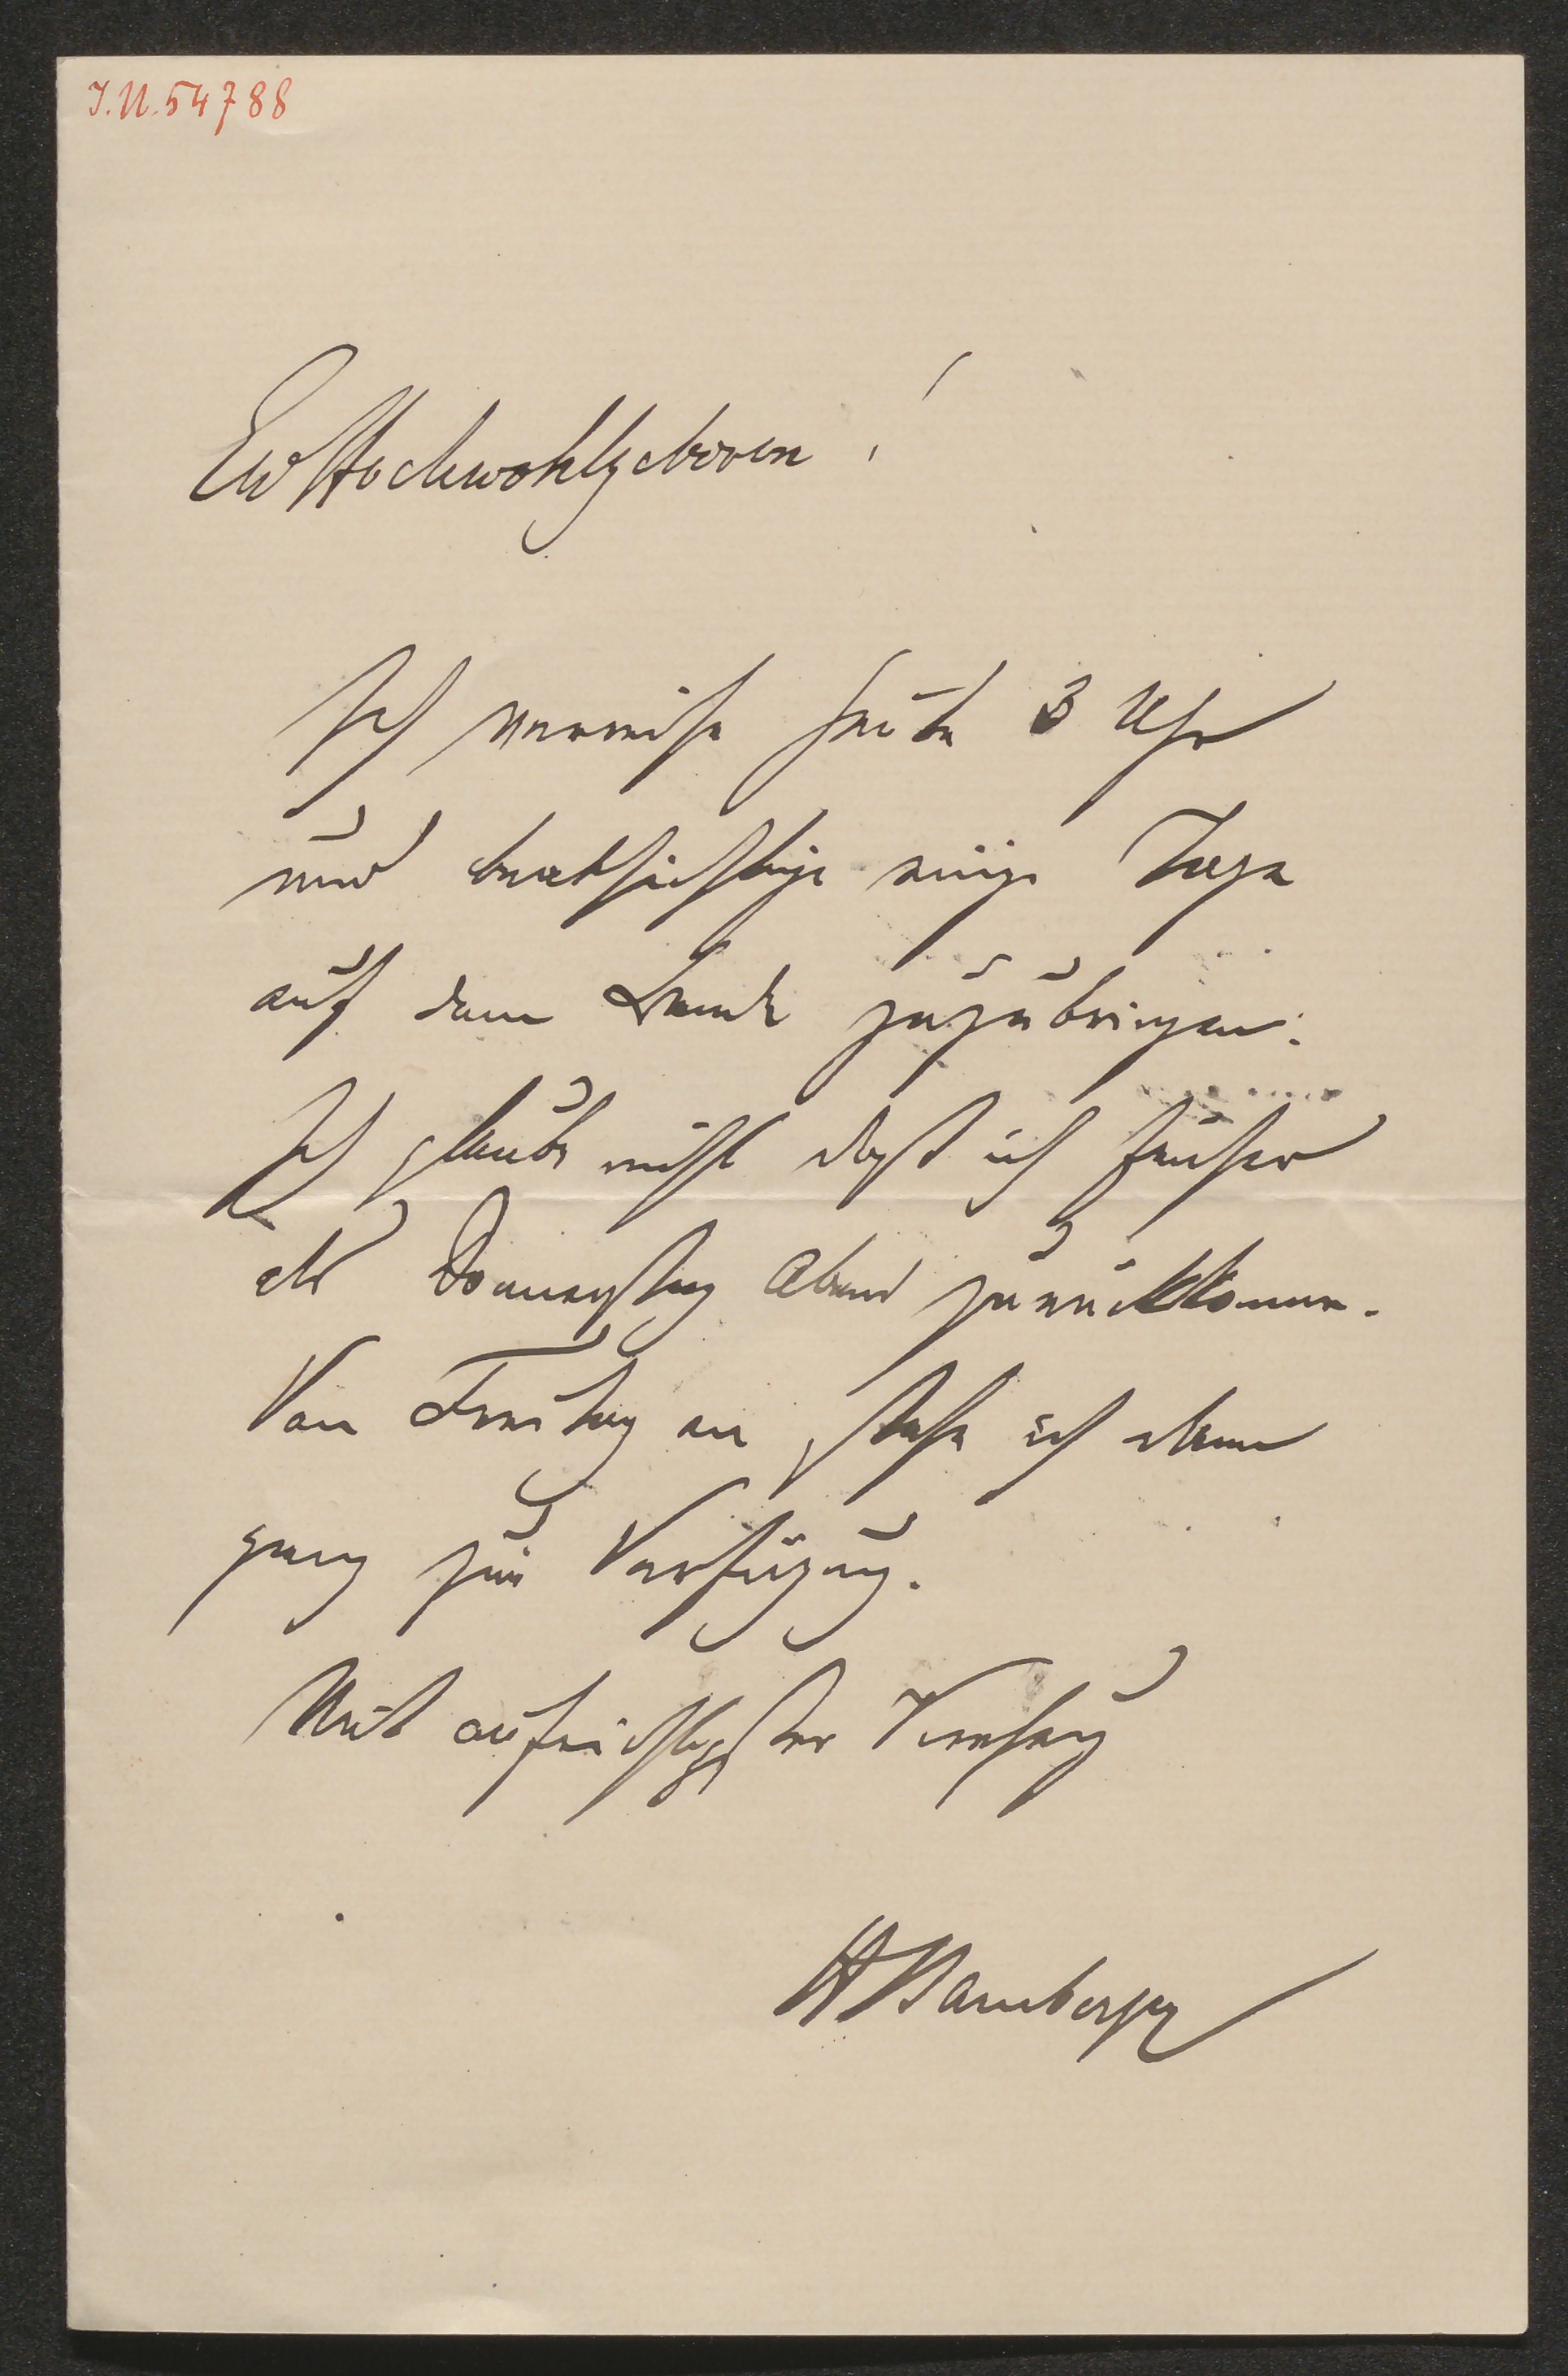 I.N. 54788
Ew Hochwohlgeboren!
Ich verreise heute 3 Uhr
und beabsichtige einige Tage
auf dem Lande zuzubringen.
Ich glaube nicht daß ich früher
als Donnerstag Abend zurückkomme.
Von Freitag an stehe ich dann
ganz zur Verfügung.
Mit aufrichtigster Verehrung
HBamberger